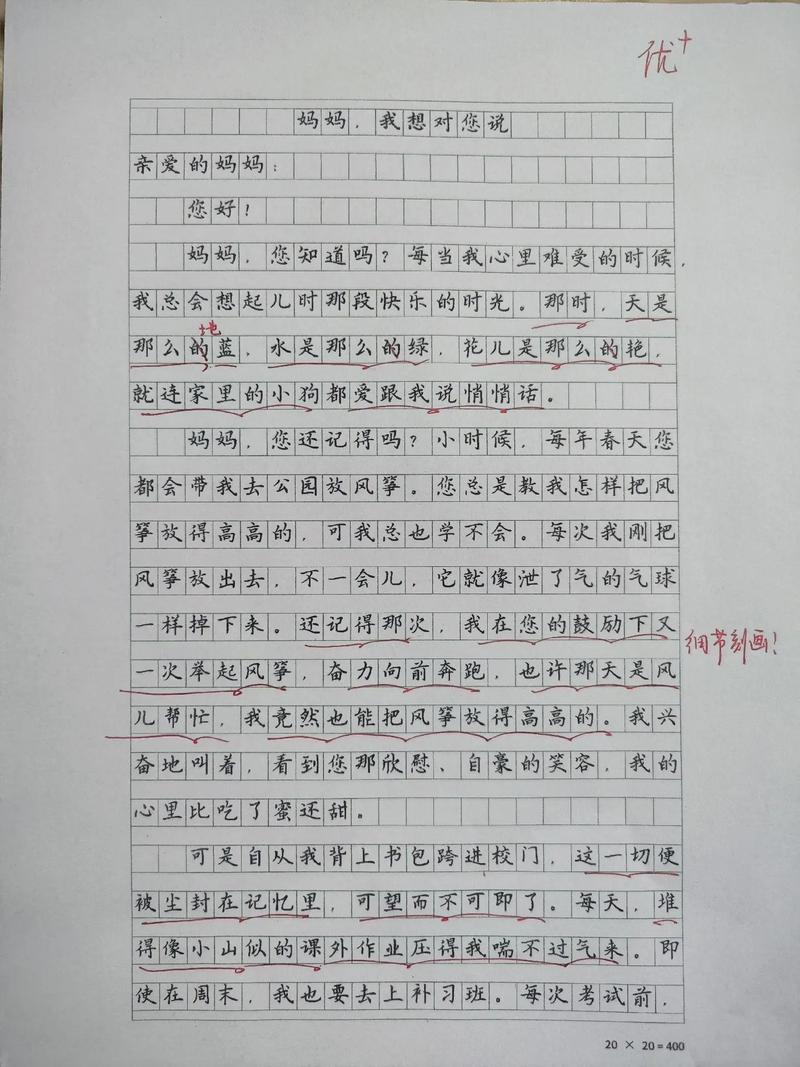 优+
妈妈，我想对您说
亲爱的妈妈：
您好！
妈妈，您知道吗？每当我心里难受的时候，
我总会想起儿时那段快乐的时光。那时，天是
地
那么的蓝，水是那么的绿，花儿是那么的艳，
就连家里的小狗都爱跟我说悄悄话。
妈妈，您还记得吗？小时候，每年春天您
都会带我去公园放风筝。您总是教我怎样把风
筝放得高高的，可我总也学不会。每次我刚把
风筝放出去，不一会儿，它就像泄了气的气球
一样掉下来。还记得那次，我在您的鼓励下又
细节刻画！
一次举起风筝，奋力向前奔跑，也许那天是风
儿帮忙，我竟然也能把风筝放得高高的。我兴
奋地叫着，看到您那欣慰、自豪的笑容，我的
心里比吃了蜜还甜。
可是自从我背上书包跨进校门，这一切便
被尘封在记忆里，可望而不可即了。每天，堆
得像小山似的课外作业压得我喘不过气来。即
使在周末，我也要去上补习班。每次考试前，
20 × 20 = 400